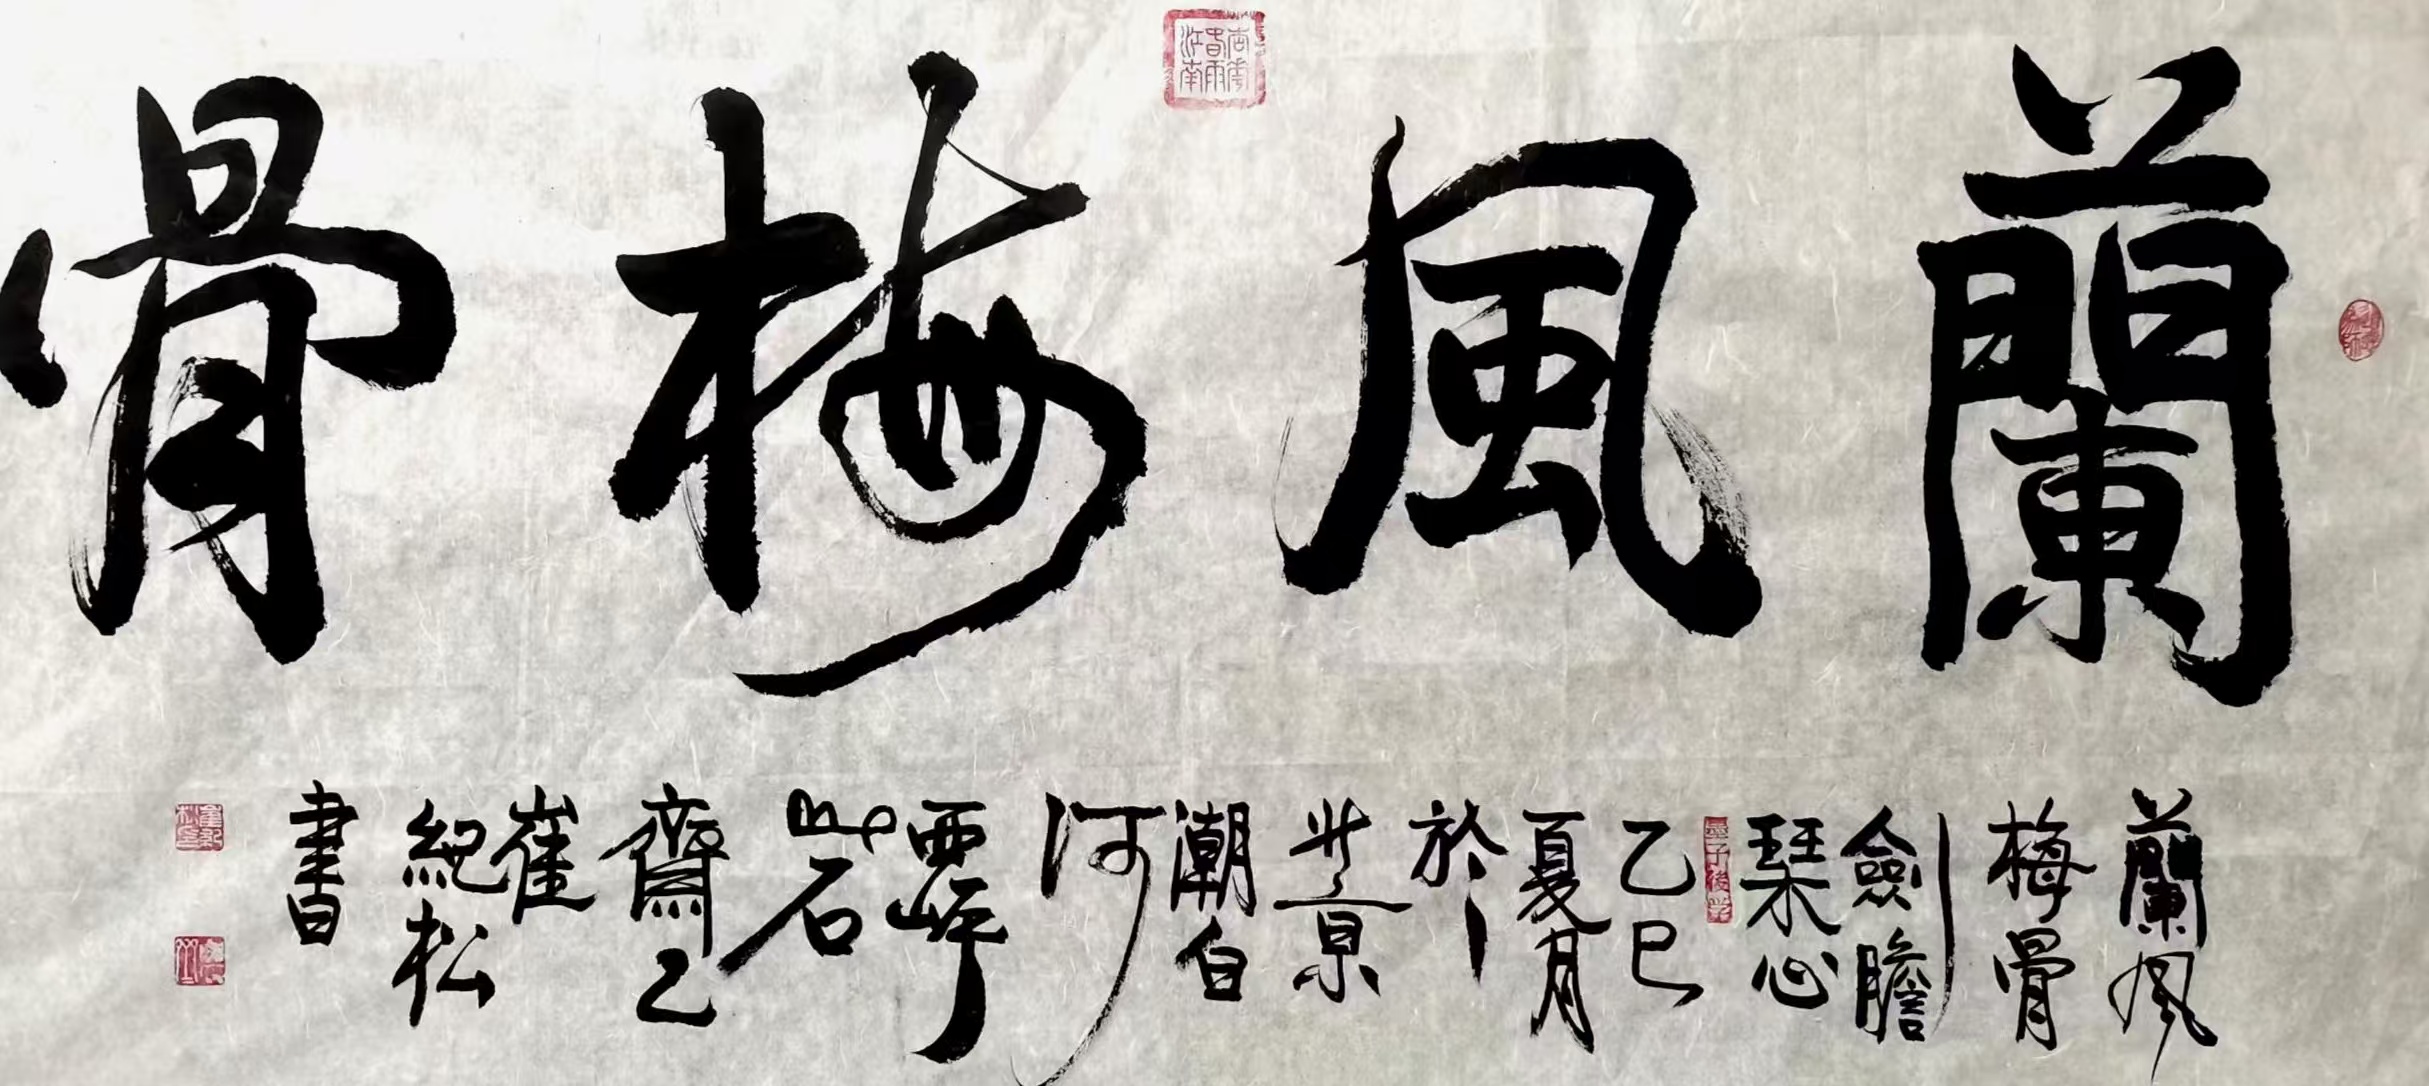 蘭風梅骨
蘭風
梅骨
劍膽
琹心
乙巳
夏月
於
北京
潮白
河
西岸
石
齋
崔
紀松
書